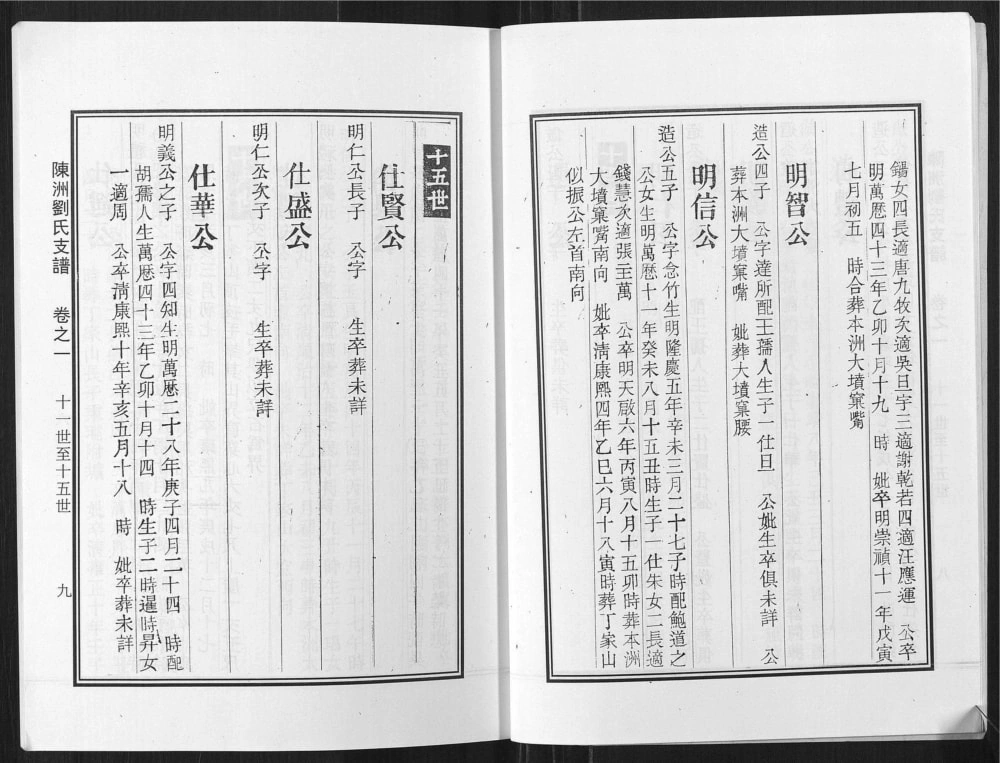 鍚女四長適唐九牧次適吳旦宇三適謝乾若四適汪應運　公卒
明萬曆四十三年乙卯十月十九　時　妣卒明崇禎十一年戊寅
七月初五　時合葬本洲大墳窠嘴
明智公
造公四子　公字達所配王孺人生子一仕旦　公妣生卒俱未詳　公
葬本洲大墳窠嘴　妣葬大墳窠腰
明信公
造公五子　公字念竹生明隆慶五年辛未三月二十七子時配鮑道之
公女生明萬曆十一年癸未八月十五丑時生子一仕朱女二長適
錢慧次適張三萬　公卒明天啟六年丙寅八月十五卯時葬本洲
大墳窠嘴南向　妣卒清康熙四年乙巳六月十八寅時葬丁家山
似振公左首南向
十五世
仕賢公
明仁公長子　公字　生卒葬未詳
仕盛公
明仁公次子　公字　生卒葬未詳
仕華公
明義公之子　公字四知生明萬曆二十八年庚子四月二十四　時配
胡孺人生萬曆四十三年乙卯十月十四　時生子二時暹時昇女
一適周　公卒清康熙十年辛亥五月十八　時　妣卒葬未詳
陳洲劉氏支譜　卷之一　十一世至十五世　九